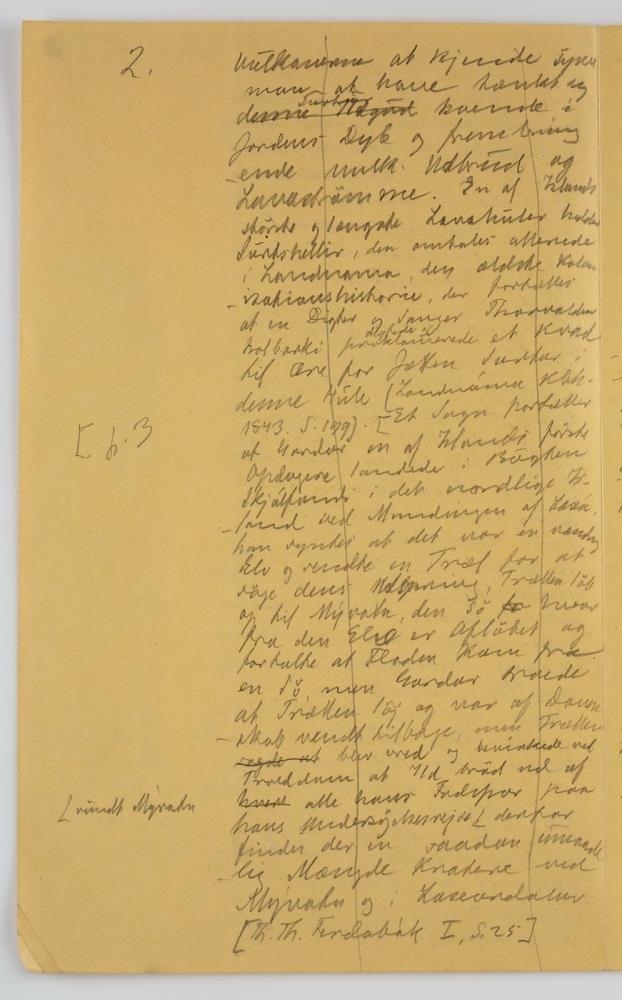 2.
Vulkanerne at kjende
man at have tænkt sig
denne Surtur boende i
Jordens Dyb og frembring
ende vulk. Udbrud og
Lavaströmme. En af Islands
störste og længste Lavahuler hedder
Surtshellir, den omtales allerede
i Landnama, den ældste Kolon
isationshistorie, der fortælles
at en Digter og Sanger Thorvaldur
holbarki digtede et Kvad
til Ære for Jætten Surtur i
denne Hule (Landnáma Kbh.
1843. S. 199). [Et Sagn fortæller
[p. 3
at Gardar en af Islands förste
Opdagere landede i Bugten
Skjálfandi i det nordlige Is-
land ved Mundingen af Laxá,
han syntes at det var en
Elv og sendte en Træl for at
söge dens Udspring, Trællen löb
op til Mývatn, den Sö hvor
fra den Elv er Aflöbet og
fortalte at Floden kam fra
en Sö, men Gardar troede
at Trællen lög og var af Daven
skab vendt tilbage, men Trællen
sagde at blev vred og bevirkede ved
Trolddom at Ild bröd ud af
hvert alle hans Fodspor paa
[rundt Mývatn
hans Undersögelsesrejse [ derfor
findes der en saadan umaade
lig Mængde Kratere ved
Mývatn og i Laxárdalur
[Th. Th. Ferdabók I, S. 25]